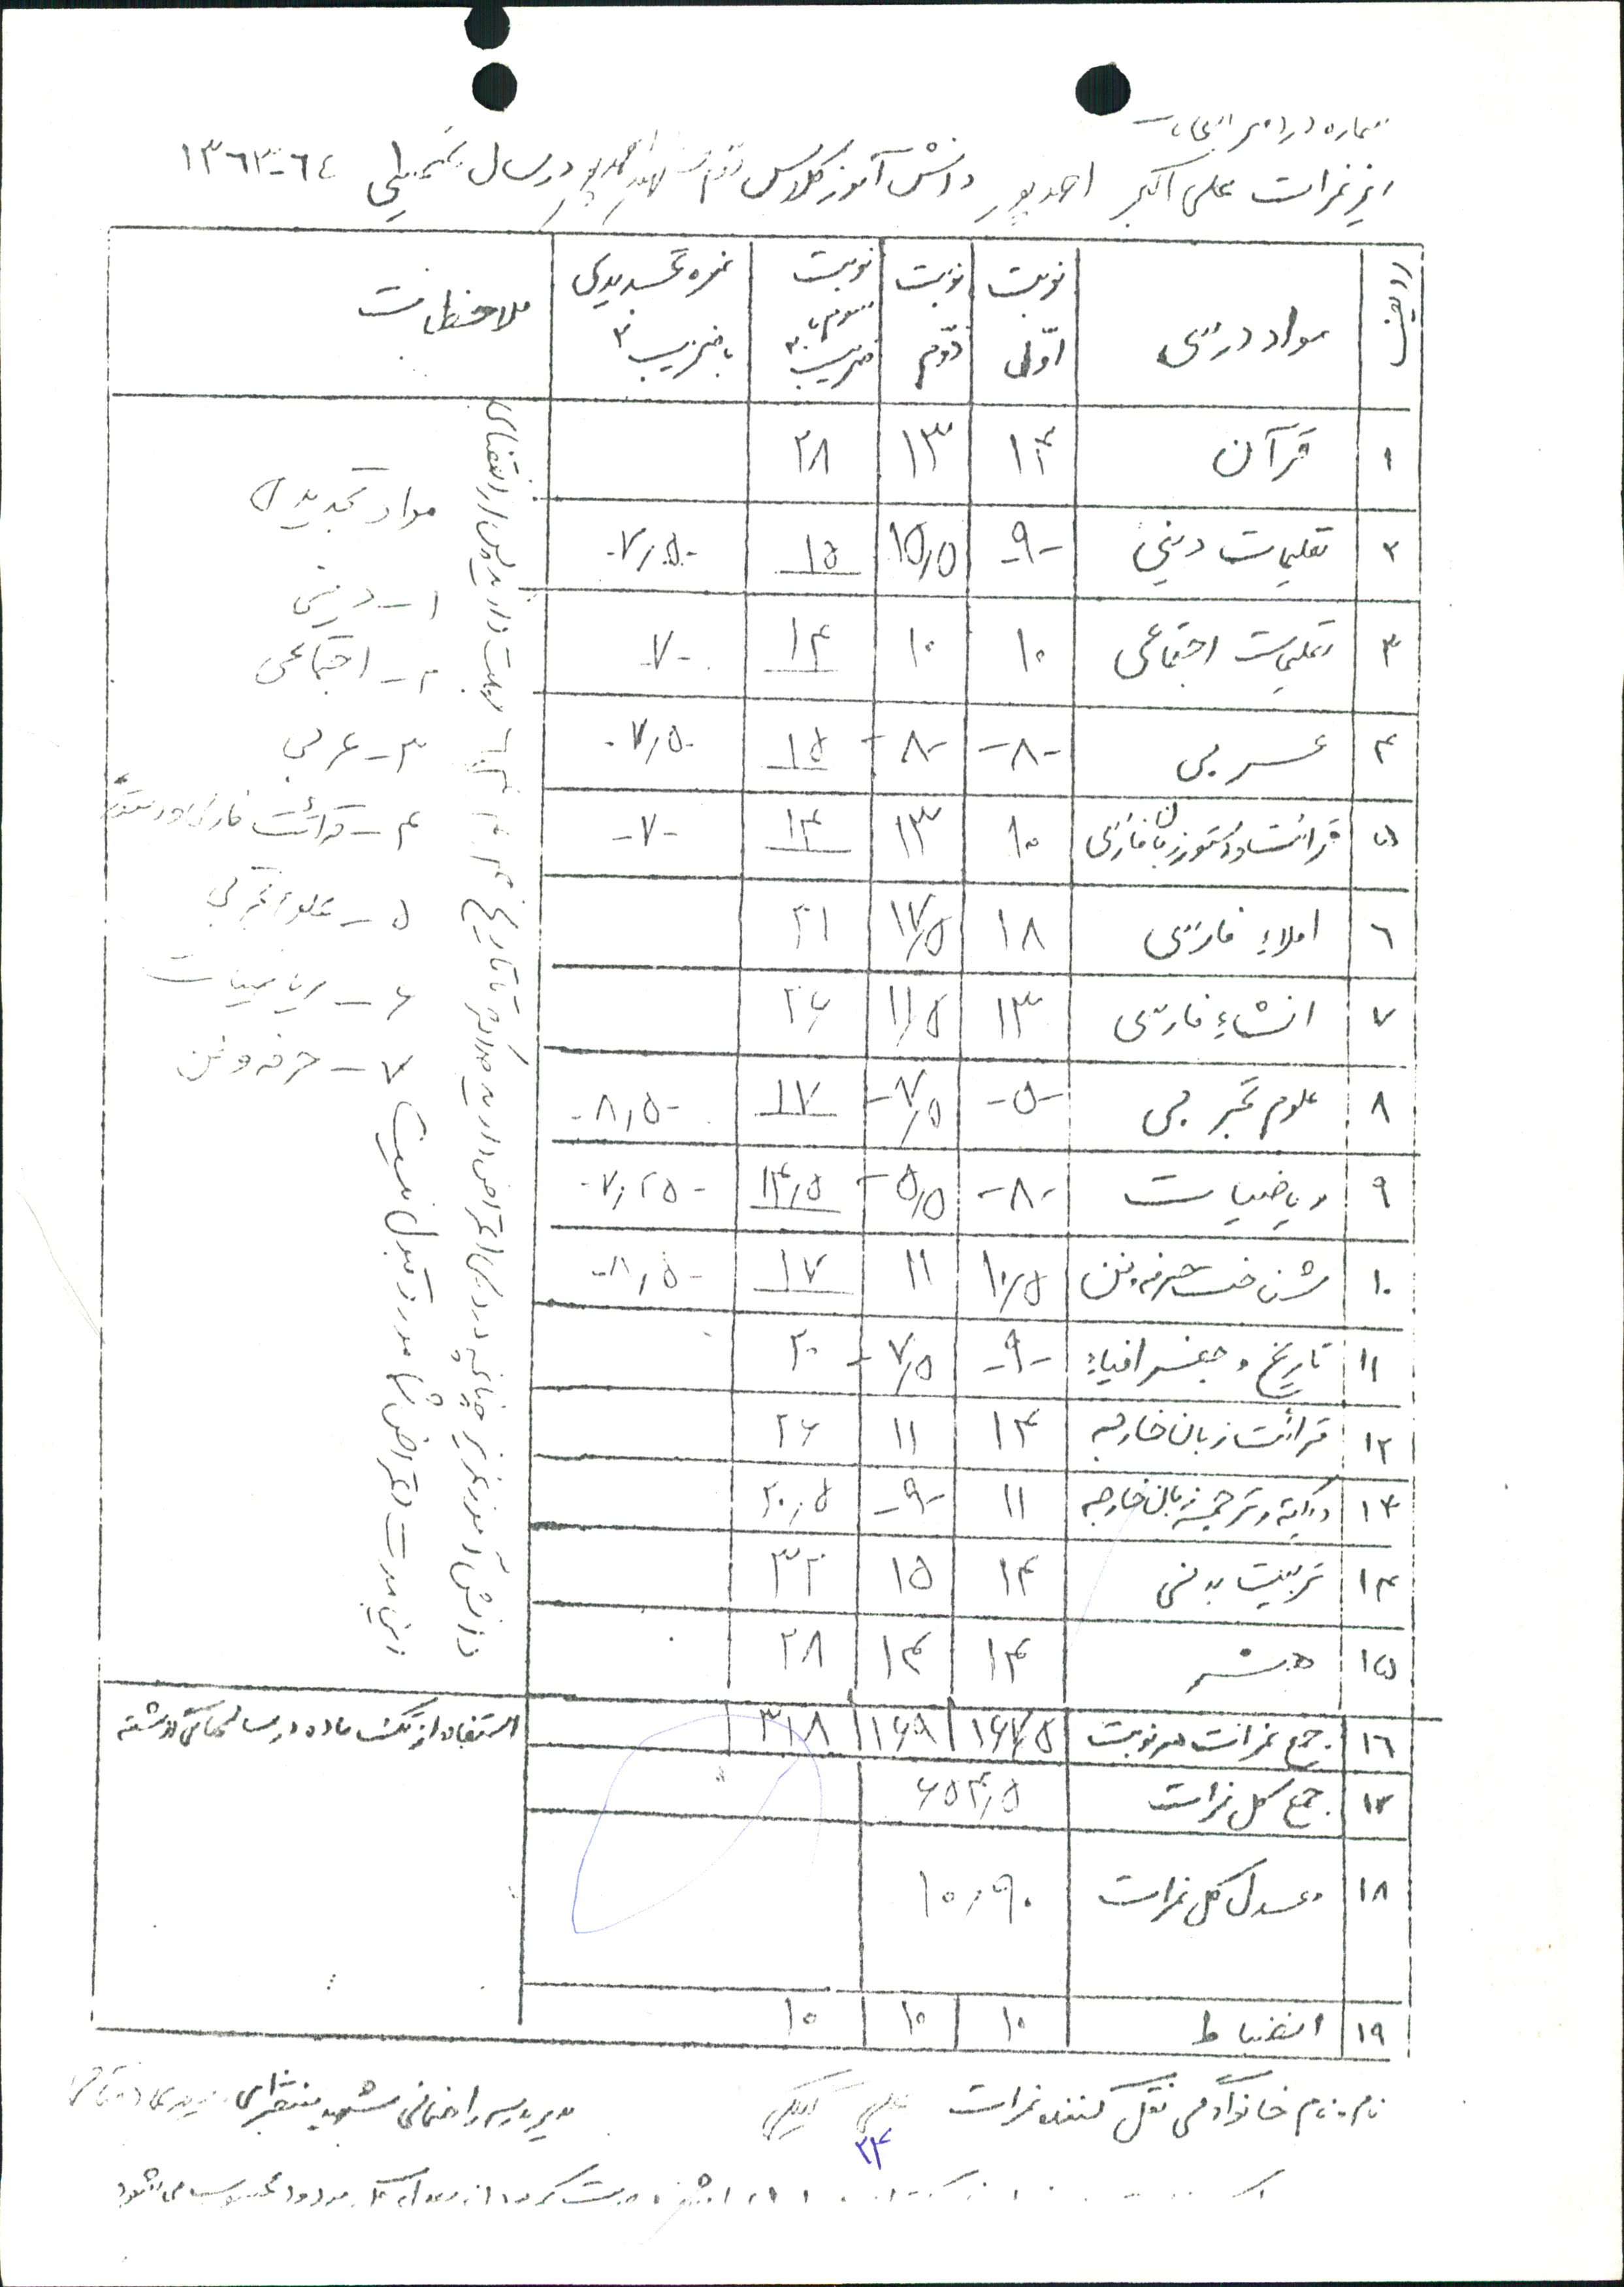 شماره در دفتر امتحانات
ریز نمرات علی اکبر احمدپور دانش آموز کلاس دوم در سال تحصیلی ٦٤-١٣٦٣
ردیف مواد درسی نوبت اوّل نوبت دوّم نوبت سوم با ضریب ۲ نمره تجدیدی با ضریب ۳ ملاحظات
۱ قرآن ۱۴ ۱۳ ۲۸
۲ تعلیمات دینی -۹- ۱۵٫۵ ۱۵ -۷٫۵-
۳ تعلیمات اجتماعی ۱۰ ۱۰ ۱۴ -۷-
۴ عربی -۸- -۸- ۱۵ -۷٫۵-
۵ قرائت و دستور زبان فارسی ۱۰ ۱۳ ۱۴ -۷-
٦ املاء فارسی ۱۸ ۱۷٫۵ ۲۱
۷ انشاء فارسی ۱۳ ۱۱٫۵ ۲۶
۸ علوم تجربی -۵- -۷٫۵- ۱۷ -۸٫۵-
۹ ریاضیات -۸- -۵٫۵- ۱۴٫۵ -۷٫۲۵-
۱۰ شناخت حرفه و فن ۱۰٫۵ ۱۱ ۱۷ -۸٫۵-
۱۱ تاریخ و جغرافیاء -۹- -۷٫۵- ۲۰
۱۲ قرائت زبان خارجه ۱۴ ۱۱ ۲۶
۱۳ دیکته و ترجمه زبان خارجه ۱۱ -۹- ۲۰٫۵
۱۴ تربیت بدنی ۱۴ ۱۵ ۳۲
۱۵ هنر ۱۴ ۱۴ ۲۸
۱٦ جمع نمرات هر نوبت ۱۶۷٫۵ ۱۶۹ ۳۱۸
۱۷ جمع کل نمرات ۶۵۴٫۵
۱۸ معدل کل نمرات ۱۰٫۹۰
۱۹ انضباط ۱۰ ۱۰ ۱۰
مواد تجدیدی
۱- دینی
۲- اجتماعی
۳- عربی
۴- قرائت فارسی و دستور
۵- علوم تجربی
۶- ریاضیات
۷- حرفه و فن
دانش آموز عزیز چنانچه در درسی اعتراض دارید حداکثر تا تاریخ
این مدت اعتراض شما مورد قبول نیست
استفاده از تک ماده در سالهای گذشته
نام و نام خانوادگی نقل کننده نمرات علی
مدیر مدرسه راهنمائی شهید منتظری
۲۴
مردود محسوب می شود